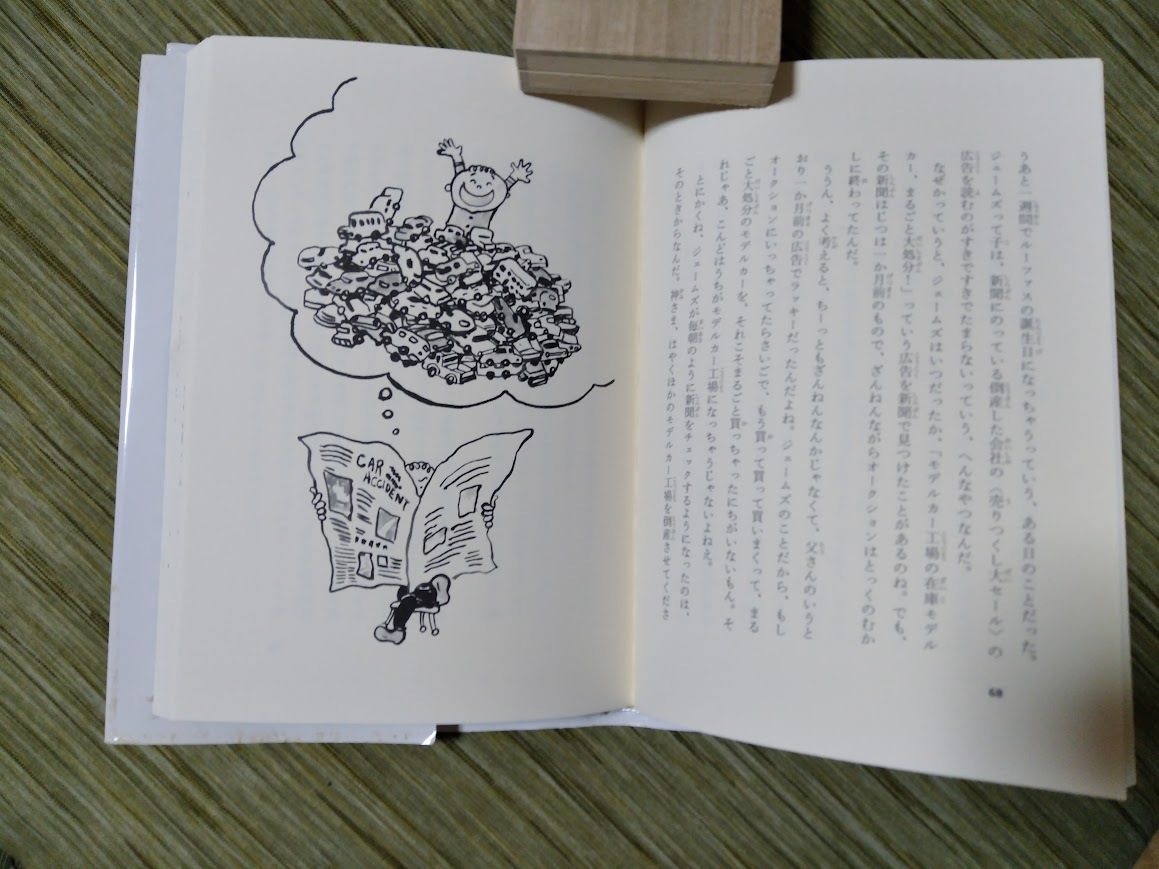 うあと一週間でルーファスの誕生日になっちゃうっていう、ある日のことだった。
ジェームズって子は、新聞にのっている倒産した会社の〈売りつくし大セール〉の
広告を読むのがすきですきでたまらないっていう、へんなやつなんだ。
なぜかっていうと、ジェームズはいつだったか、「モデルカー工場の在庫モデル
カー、まるごと大処分！」っていう広告を新聞で見つけたことがあるのね。でも、
その新聞はじつは一か月前のもので、ざんねんながらオークションはとっくのむか
しに終わってたんだ。
ううん、よく考えると、ちーっともざんねんなんかじゃなくて、父さんのいうと
おり一か月前の広告でラッキーだったんだよね。ジェームズのことだから、もし
オークションにいっちゃってたらさいごで、もう買って買って買いまくって、まる
ごと大処分のモデルカーを、それこそまるごと買っちゃったにちがいないもん。そ
れじゃあ、こんどはうちがモデルカー工場になっちゃうじゃないよねえ。
とにかくね、ジェームズが毎朝のように新聞をチェックするようになったのは、
そのときからなんだ。神さま、はやくほかのモデルカー工場を倒産させてくださ
68
CAR
ACCIDENT